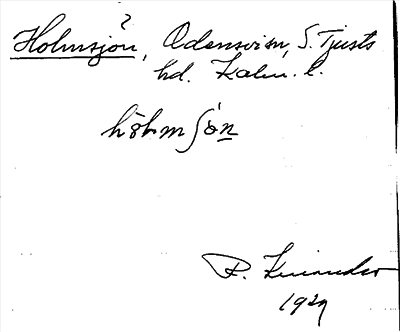 ?
Holmsjön, Odensvi sn, S. Tjusts
hd. Kalm. l.
hòlmʃö̀n
R. Kinander
1927